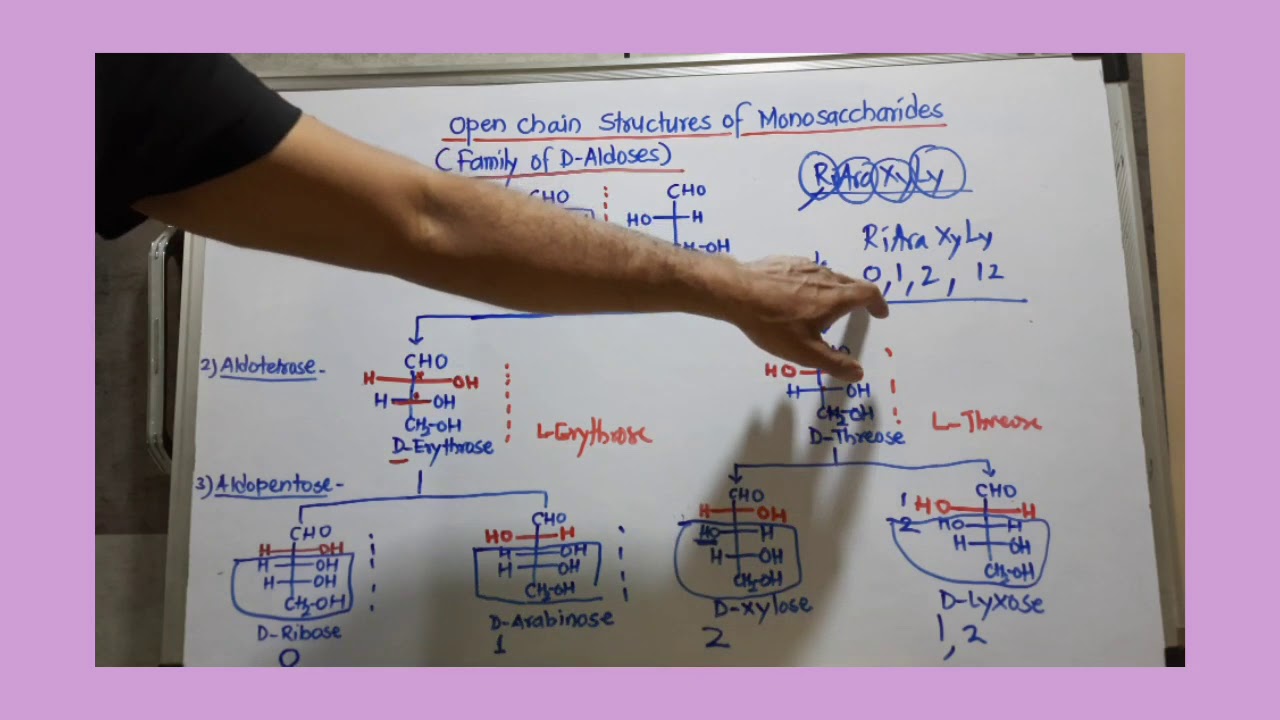 Open Chain Structures of Monosaccharides
(Family of D-Aldoses)
RiAraXyLy
CHO
CHO
HO H
H-OH
RiAra XyLy
0,1,2, 12
2) Aldotetrose-
CHO
H OH
H OH
CH2-OH
D-Erythrose
L-Erythrose
HO
H OH
CH2-OH
D-Threose
L-Threose
3) Aldopentose-
CHO
H OH
H OH
H OH
CH2-OH
D-Ribose
0
CHO
HO H
H OH
H OH
CH2-OH
D-Arabinose
1
CHO
H OH
HO H
H OH
CH2-OH
D-Xylose
2
CHO
1 HO H
2 HO H
H OH
CH2-OH
D-Lyxose
1, 2